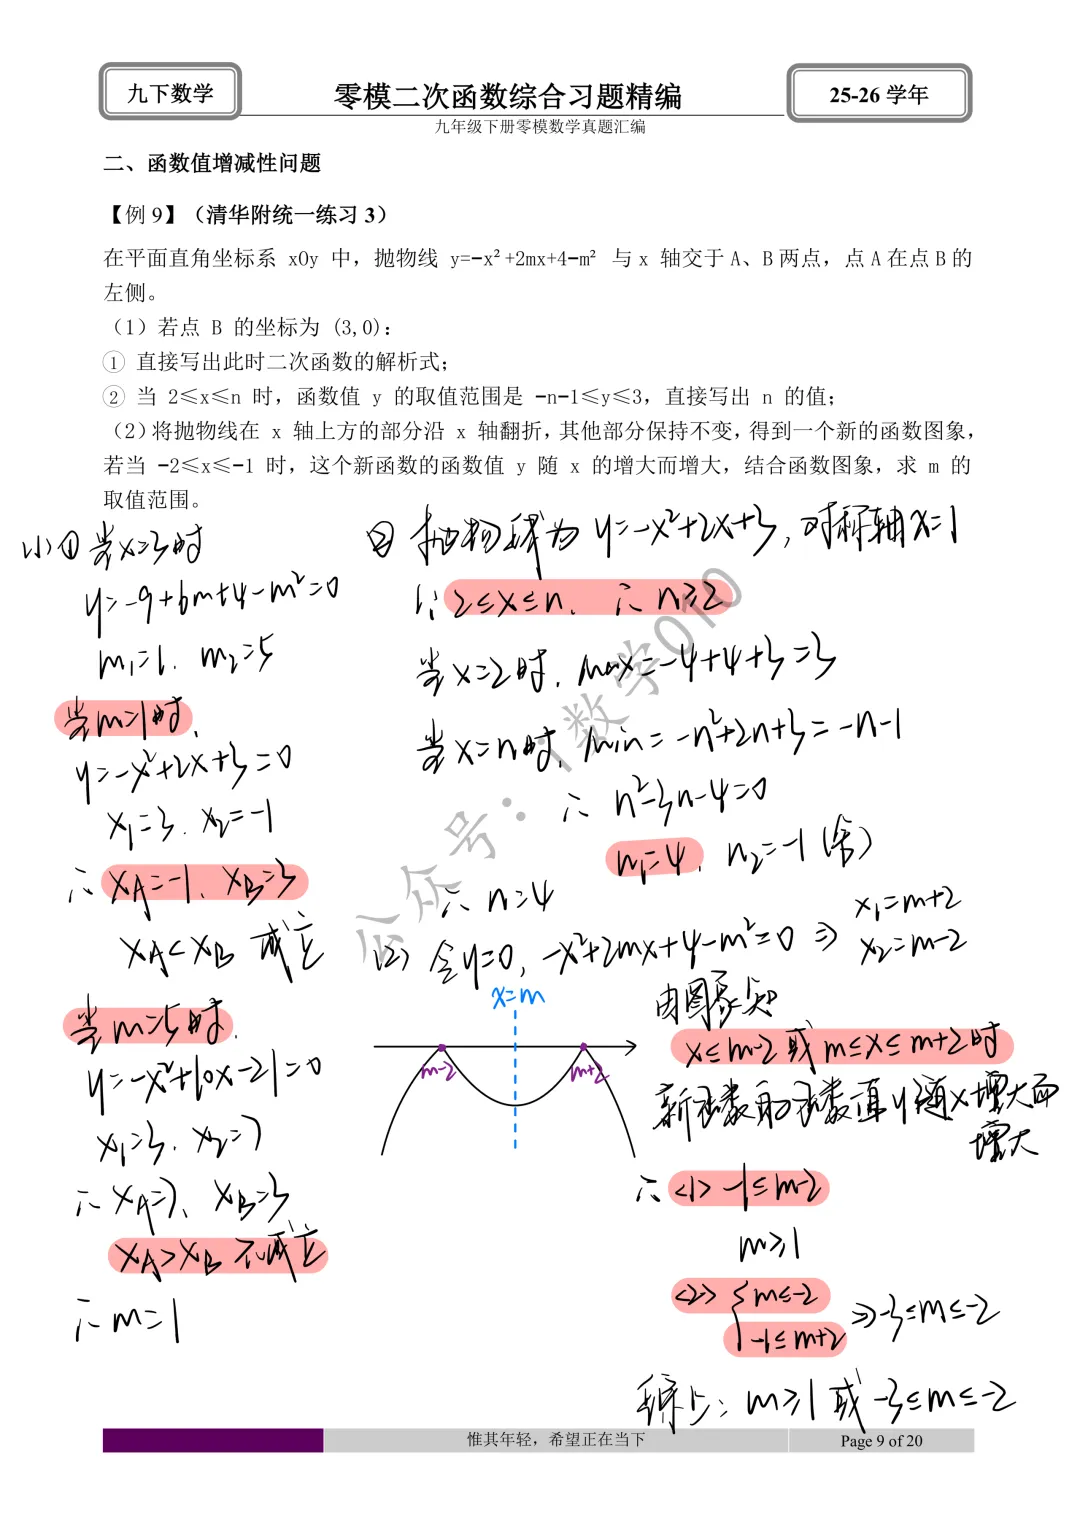 九下数学
零模二次函数综合习题精编
25-26 学年
九年级下册零模数学真题汇编
二、函数值增减性问题
【例 9】（清华附统一练习 3）
在平面直角坐标系 xOy 中，抛物线 y=-x²+2mx+4-m² 与 x 轴交于 A、B 两点，点 A 在点 B 的
左侧。
（1）若点 B 的坐标为 (3,0)：
① 直接写出此时二次函数的解析式；
② 当 2≤x≤n 时，函数值 y 的取值范围是 -n-1≤y≤3，直接写出 n 的值；
（2）将抛物线在 x 轴上方的部分沿 x 轴翻折，其他部分保持不变，得到一个新的函数图象，
若当 -2≤x≤-1 时，这个新函数的函数值 y 随 x 的增大而增大，结合函数图象，求 m 的
取值范围。
(1) ① 当x=3时
y=-9+6m+4-m²=0
m₁=1. m₂=5
当m=1时.
y=-x²+2x+3=0
x₁=3. x₂=-1
∴ xA=-1、xB=3
xA<xB 成立
当m=5时.
y=-x²+10x-21=0
x₁=3. x₂=7
∴ xA=7、xB=3
xA>xB 不成立
∴ m=1
② 抛物线为 y=-x²+2x+3, 对称轴x=1
∵ 2≤x≤n. ∴ n≥2
当x=2时. max=-4+4+3=3
当x=n时. min=-n²+2n+3=-n-1
∴ n²-3n-4=0
n₁=4. n₂=-1 (舍)
∴ n=4
(2) 令y=0, -x²+2mx+4-m²=0 ⇒ x₁=m+2
x₂=m-2
x=m
m-2
m+2
由图象知
x≤m-2 或 m≤x≤m+2时
新函数的函数值y随x增大而
增大
∴ <1> -1≤m-2
m≥1
<2> { m≤-2
-1≤m+2
⇒ -3≤m≤-2
综上: m≥1 或 -3≤m≤-2
公众号：i数学010
惟其年轻，希望正在当下
Page 9 of 20